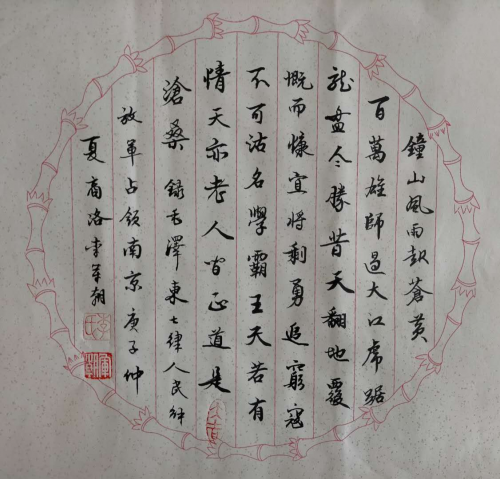 鐘山風雨起蒼黄
百萬雄師過大江虎踞
龍盤今勝昔天翻地覆
慨而慷宜将剩勇追窮寇
不可沽名學霸王天若有
情天亦老人间正道是
滄桑 録毛澤東七律人民解
放軍占領南京庚子仲
夏商洛李軍朝